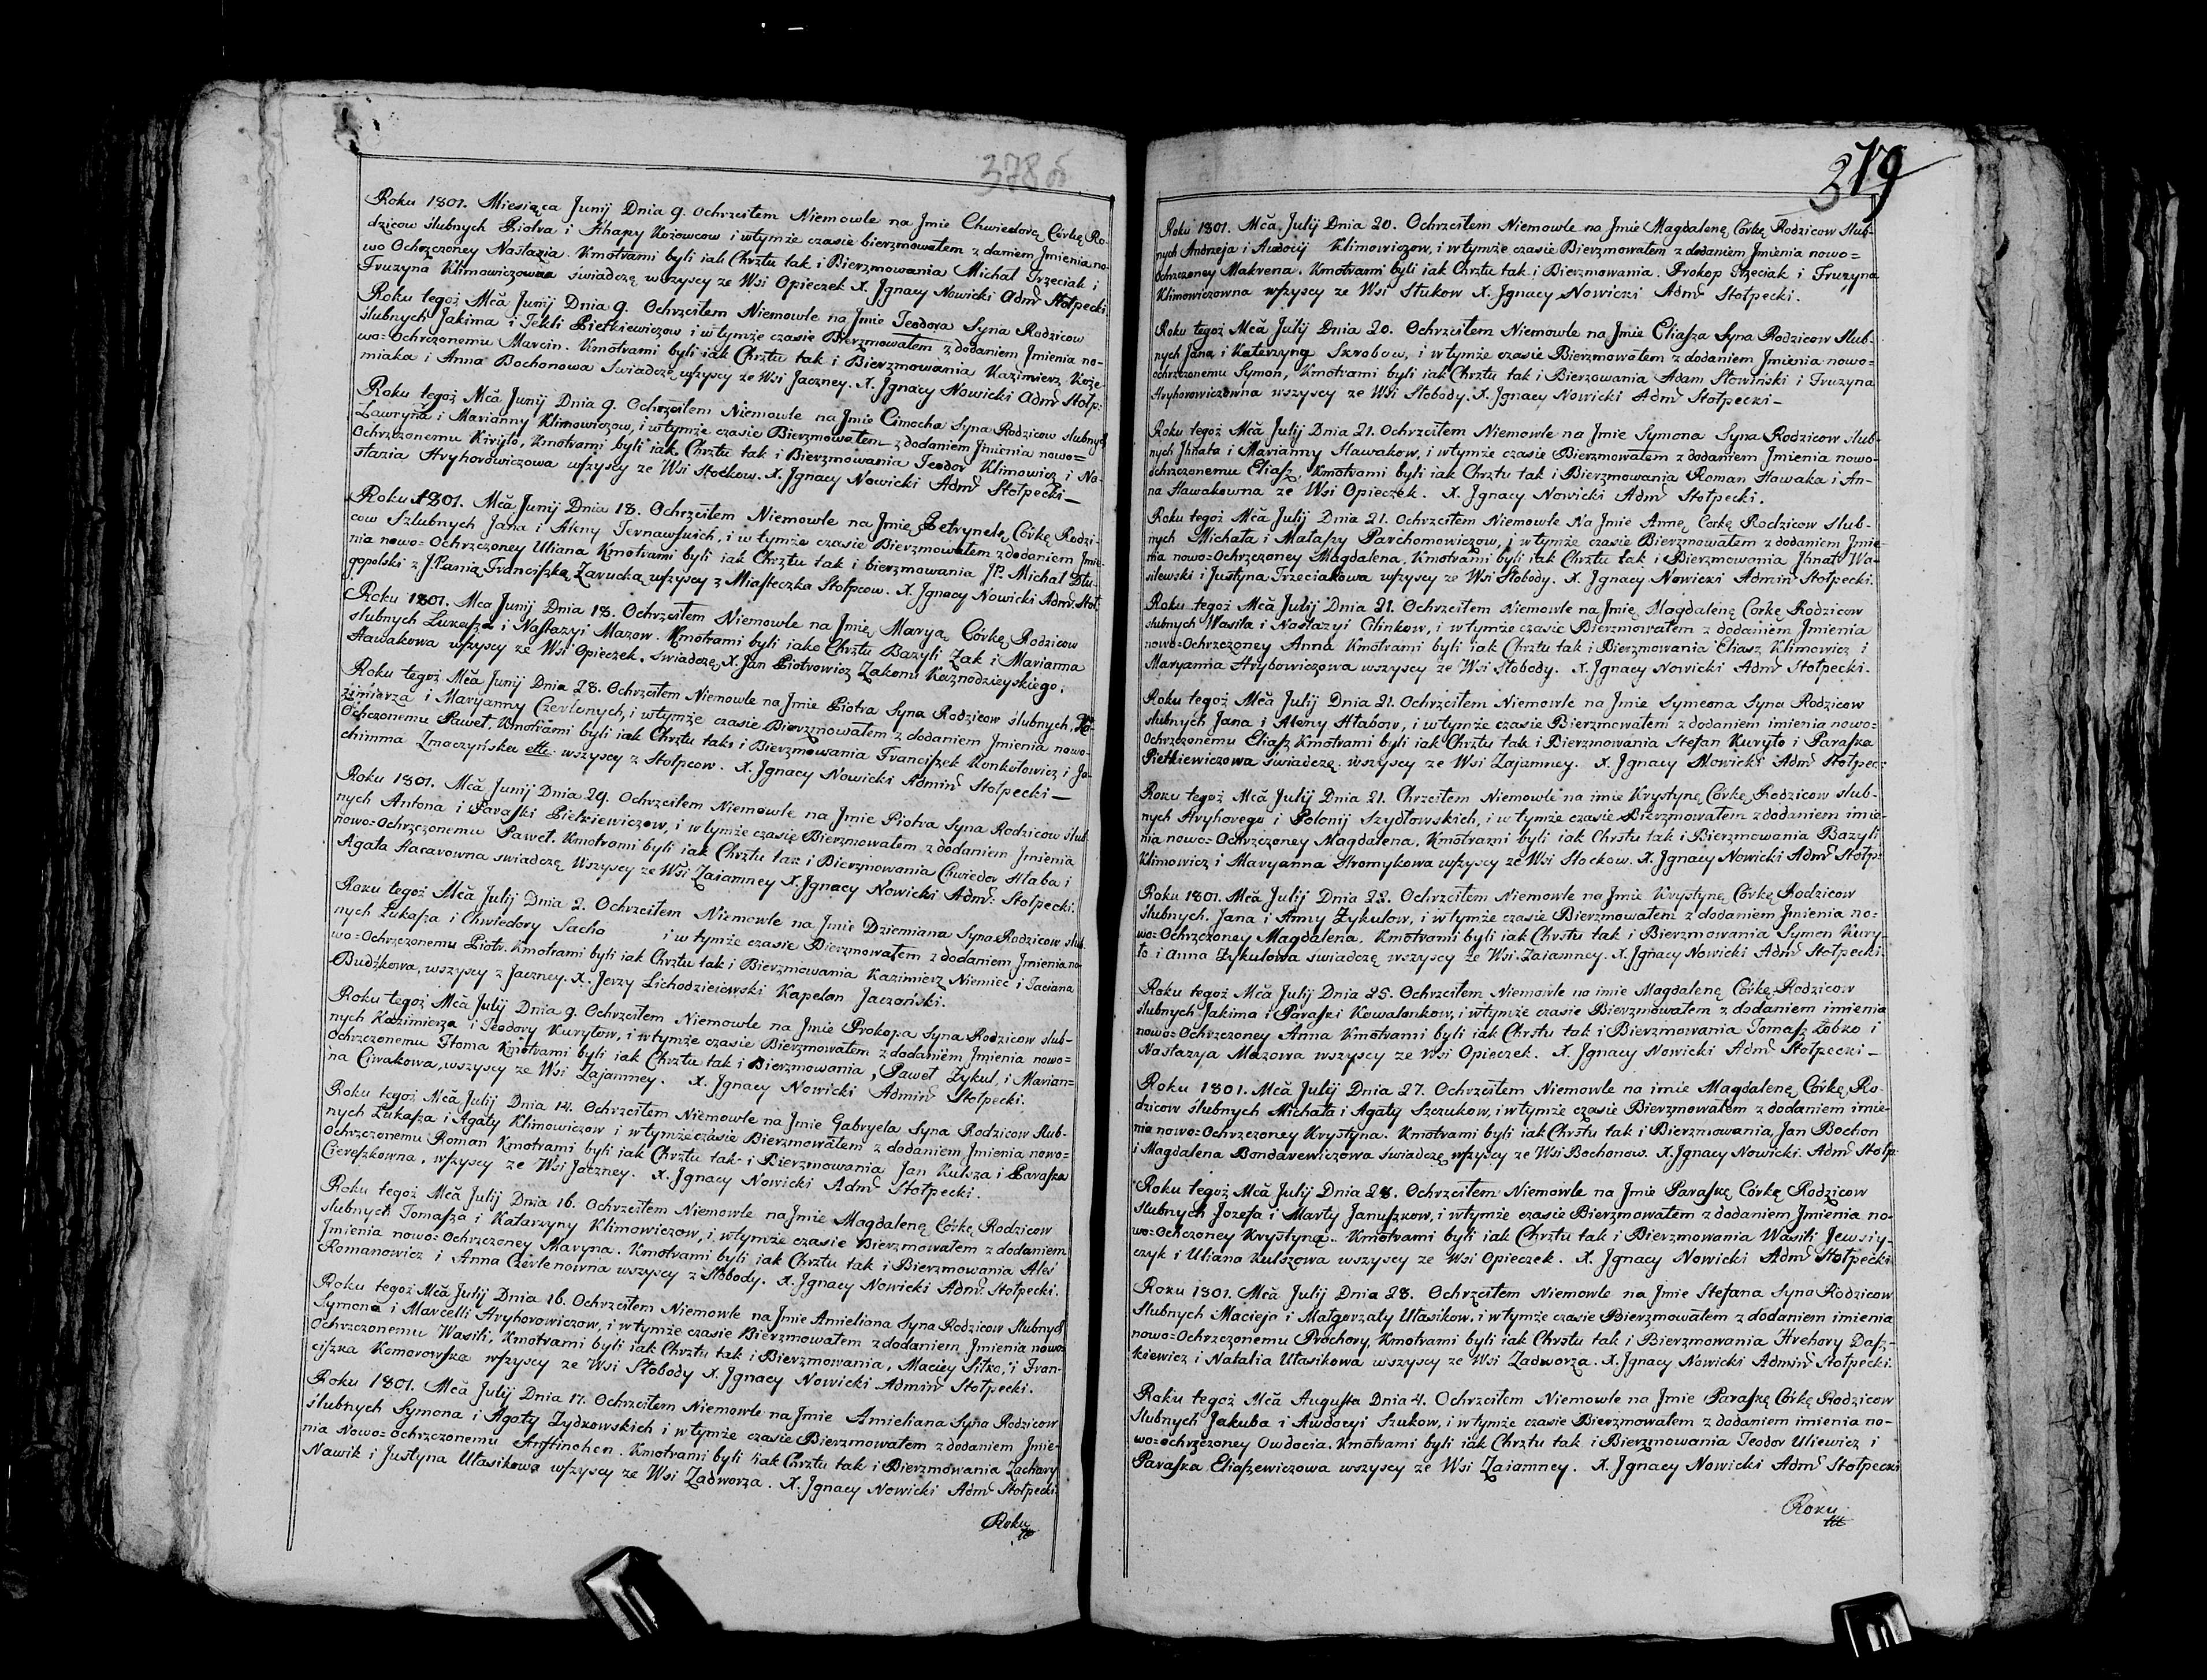 378б
Roku 1801. Miesiąca Junij Dnia 9. Ochrzciłem Niemowle na Jmie Chwiedorę Córkę Ro-
dzicow ślubnych Piotra i Ahapy Kozowcow i wtymże czasie bierzmowałem z daniem Jmienia no-
wo Ochrzczoney Nastazia. Kmotrami byli iak Chrztu tak i Bierzmowania Michał Trzeciak i
Fruzyna Klimowiczowna swiadczę wszyscy ze Wsi Opieczek X. Jgnacy Nowicki Admr Stołpecki
Roku tegoż Mča Junij Dnia 9. Ochrzciłem Niemowle na Jmie Teodora Syna Rodzicow
ślubnych Jakima i Tekli Pietkiewiczow i wtymże czasie Bierzmowałem z dodaniem Jmienia no-
wo-Ochrczonemu Marcin. Kmotrami byli iak Chrztu tak i Bierzmowania Kazimierz Koze-
miaka i Anna Bochonowa swiadczę wszyscy ze Wsi Jaczney. X. Jgnacy Nowicki Admr Stołp:
Roku tegoż Mča Junij Dnia 9. Ochrzciłem Niemowle na Jmie Cimocha Syna Rodzicow slubnych
Ławryna i Marianny Klimowiczow, i wtymże czasie Bierzmowałem z dodaniem Jmienia nowo=
Ochrzczonemu Kiryło, Kmotrami byli iak Chrztu tak i Bierzmowania Teodor Klimowicz i Na-
stazia Hryhorowiczowa wszyscy ze Wsi Stockow. X. Jgnacy Nowicki Admr Stołpecki—
Roku 1801. Mča Junij Dnia 18. Ochrzciłem Niemowle na Jmię Petrynelę Córkę Rodzi-
cow Szlubnych Jana i Ateny Ternawskich, i w tymże czasie Bierzmowałem zdodaniem Jmie-
nia nowo=Ochrzczoney Uliana Kmotrami byli iak Chrztu tak i bierzmowania JP. Michał Dłu-
gopolski z J.Panią Franciszką Zarucką wszyscy z Miasteczka Stołpcow. X. Jgnacy Nowicki Admr. Stoł.
Roku 1801. Mca Junij Dnia 18. Ochrzciłem Niemowle na Jmię Maryą Córkę Rodzicow
slubnych Łukasza i Nastazyi Mazow. Kmotrami byli iako Chrztu Bazyli Żak i Marianna
Hawakowa wszyscy ze Wsi Opieczek. swiadczę X. Jan Piotrowicz Zakonu Kaznodzieyskiego.
Roku tegoż Mča Junij Dnia 28. Ochrzciłem Niemowle na Jmie Piotra Syna Rodzicow ślubnych Ka-
zimierza i Maryanny Czerlonych, i wtymże czasie Bierzmowałem z dodaniem Jmienia nowo-
Ochczonemu Paweł. Kmotrami byli iak Chrztu tak i Bierzmowania Franciszek Konkołowicz i Ja-
chimma Zmaczyńska wszyscy z Stołpcow. X. Jgnacy Nowicki Adminr Stołpecki—
Roku 1801. Mča Junij Dnia 29. Ochrzciłem Niemowle na Jmie Piotra Syna Rodzicow slub-
nych Antona i Paraski Pietkiewiczow, i w tymże czasie Bierzmowałem z dodaniem Jmienia
nowo=Ochrzczonemu Paweł. Kmotrami byli iak Chrztu tak i Bierzmowania Chwiedor Hłaba i
Agata Hacarowna swiadczę Wszyscy ze Wsi Zaiamney X. Jgnacy Nowicki Admr: Stołpecki.
Roku tegoż Mča Julij Dnia 2. Ochrzciłem Niemowle na Jmie Dziemiana Syna Rodzicow slub-
nych Łukasza i Chwiedory Sacho i w tymże czasie Bierzmowałem z dodaniem Jmienia no-
wo=Ochrzczonemu Piotr. Kmotrami byli iak Chrztu tak i Bierzmowania Kazimierz Niemiec i Taciana
Budźkowa, wszyscy z Jaczney. X. Jerzy Lichodzieiewski Kapelan Jaczański.
Roku tegoż Mča Julij Dnia 9. Ochrzciłem Niemowle na Jmie Prokopa Syna Rodzicow slub-
nych Kazimierza i Teodory Kuryłow, i wtymże czasie Bierzmowałem z dodaniem Jmienia nowo=
Ochrzczonemu Thoma Kmotrami byli iak Chrztu tak i Bierzmowania, Paweł Żykul, i Marian=
na Ciwakowa, wszyscy ze Wsi Zajamney. X. Jgnacy Nowicki Adminr Stołpecki.
Roku tegoż Mča Julij Dnia 14. Ochrzciłem Niemowle na Jmie Gabryela Syna Rodzicow slub-
nych Łukasza i Agaty Klimowiczow i wtymże czasie Bierzmowałem z dodaniem Jmienia nowo=
Ochrzczonemu Roman Kmotrami byli iak Chrztu tak i Bierzmowania Jan Kulsza i Paraska
Ciereszkowna, wszyscy ze Wsi Jaczney. X. Jgnacy Nowicki Admr Stołpecki.
Roku tegoż Mča Julij Dnia 16. Ochrzciłem Niemowle na Jmie Magdalenę Córkę Rodzicow
slubnych Tomasza i Katarzyny Klimowiczow, i wtymże czasie Bierzmowałem z dodaniem
Jmienia nowo=Ochrzczoney Maryna. Kmotrami byli iak Chrztu tak i Bierzmowania Alex
Romanowicz i Anna Czerlenowna wszyscy z Słobody. X. Jgnacy Nowicki Admr. Stołpecki.
Roku tegoż Mča Julij Dnia 16. Ochrzciłem Niemowle na Jmie Amieliana Syna Rodzicow slubnych
Symona i Marcelli Hryhorowiczow, i wtymże czasie Bierzmowałem zdodaniem Jmienia nowo=
Ochrzczonemu Wasili, Kmotrami byli iak Chrztu tak i Bierzmowania, Maciey Sitko, i Fran-
ciszka Komorowska wszyscy ze Wsi Słobody X. Jgnacy Nowicki Adminr Stołpecki.
Roku 1801. Mča Julij Dnia 17. Ochrzciłem Niemowle na Jmie Amieliana Syna Rodzicow
ślubnych Symona i Agaty Zydkowskich i w tymże czasie Bierzmowałem z dodaniem Jmie-
nia Nowo=Ochrzczonemu Anftinohen. Kmotrami byli iak Chrztu tak i Bierzmowania Zachary
Nawik i Justyna Ułasikowa wszyscy ze Wsi Zadworza. X. Jgnacy Nowicki Admr Stołpecki
Roku
379
Roku 1801. Mča Julij Dnia 20. Ochrzciłem Niemowle na Jmie Magdalenę Córkę Rodzicow slub-
nych Andrzeja i Awdocij Klimowiczow, i wtymże czasie Bierzmowałem z dodaniem Jmienia nowo=
Ochrzczoney Makrena. Kmotrami byli iak Chrztu tak i Bierzmowania. Prokop Trzeciak i Fruzyna
Klimowiczowna wszyscy ze Wsi Stukow X. Jgnacy Nowicki Admr Stołpecki.
Roku tegoż Mča Julij Dnia 20. Ochrzciłem Niemowle na Jmie Eliasza Syna Rodzicow slub-
nych Jana i Katerzyną Szrobow, i wtymże czasie Bierzmowałem z dodaniem Jmienia nowo=
ochrzczonemu Symon, Kmotrami byli iak Chrztu tak i Bierzowania Adam Słowiński i Fruzyna
Hryhorowiczowna wszyscy ze Wsi Słobody. X. Jgnacy Nowicki Admr Stołpecki—
Roku tegoż Mča Julij Dnia 21. Ochrzciłem Niemowle na Jmie Symona Syna Rodzicow slub-
nych Jhnata i Marianny Hawakow, i wtymże czasie Bierzmowałem z dodaniem Jmienia nowo-
ochrzczonemu Eliasz Kmotrami byli iak Chrztu tak i Bierzmowania Roman Hawaka i An-
na Hawakowna ze Wsi Opieczek. X. Jgnacy Nowicki Admr Stołpecki.
Roku tegoż Mča Julij Dnia 21. Ochrzciłem Niemowle Na Jmie Annę Corkę Rodzicow slub-
nych Michała i Małaszy Parchomowiczow, i wtymże czasie Bierzmowałem z dodaniem Jmie-
nia nowo=Ochrzczoney Magdalena, Kmotrami byli iak Chrztu tak i Bierzmowania Jhnat Wa-
silewski i Justyna Trzeciakowa wszyscy ze Wsi Słobody. X. Jgnacy Nowicki Adminr Stołpecki.
Roku tegoż Mča Julij Dnia 21. Ochrzciłem Niemowle na Jmię Magdalenę Corkę Rodzicow
slubnych Wasila i Nastazyi Cilinkow, i wtymże czasie Bierzmowałem z dodaniem Jmienia
nowo=Ochrzczoney Anna Kmotrami byli iak Chrztu tak i Bierzmowania Eliasz Klimowicz i
Maryanna Hrybowiczowa wszyscy ze Wsi Słobody. X. Jgnacy Nowicki Admr Stołpecki.
Roku tegoż Mča Julij Dnia 21. Ochrzciłem Niemowle na Jmie Symeona Syna Rodzicow
slubnych Jana i Ateny Hłabow, i wtymże czasie Bierzmowałem z dodaniem imienia nowo=
Ochrzczonemu Eliasz Kmotrami byli iak Chrztu tak i Bierzmowania Stefan Kuryło i Paraska
Pietkiewiczowa swiadczę. wszyscy ze Wsi Zajamney. X. Jgnacy Nowicki Admr Stołpec:
Roku tegoż Mča Julij Dnia 21. Chrzciłem Niemowle na imie Krystynę Córkę Rodzicow slub-
nych Hryhorego i Polonij Szydłowskich, i w tymże czasie Bierzmowałem z dodaniem imie-
nia nowo=Ochrzczoney Magdalena, Kmotrami byli iak Chrstu tak i Bierzmowania Bazyli
Klimowicz i Maryanna Hromykowa wszyscy ze Wsi Stockow. X. Jgnacy Nowicki Admr Stołp:
Roku 1801. Mča Julij Dnia 22. Ochrzciłem Niemowle na Jmie Krystynę Córkę Rodzicow
slubnych. Jana i Anny Żykulow, i wtymże czasie Bierzmowałem z dodaniem Jmienia no=
wo=Ochrzczoney Magdalena. Kmotrami byli iak Chrstu tak i Bierzmowania Symon Kury-
ło i Anna Żykulowa swiadczę wszyscy ze Wsi Zaiamney. X. Jgnacy Nowicki Admr Stołpecki
Roku tegoż Mča Julij Dnia 25. Ochrzciłem Niemowle na imie Magdalenę Córkę Rodzicow
slubnych Jakima i Paraski Kowalonkow, i wtymże czasie Bierzmowałem z dodaniem imienia
nowo=Ochrzczoney Anna Kmotrami byli iak Chrstu tak i Bierzmowania Tomasz Łobko i
Nastazya Mazowa wszyscy ze Wsi Opieczek. X. Jgnacy Nowicki Admr Stołpecki—
Roku 1801. Mča Julij Dnia 27. Ochrzciłem Niemowle na imie Magdalenę Córkę Ro-
dzicow ślubnych Michała i Agaty Szczukow, i wtymże czasie Bierzmowałem z dodaniem imie-
nia nowo=Ochrzczoney Krystyna. Kmotrami byli iak Chrstu tak i Bierzmowania, Jan Bochon
i Magdalena Bondarewiczowa swiadczę wszyscy ze Wsi Bochonow. X. Jgnacy Nowicki. Admr Stołp:
Roku tegoż Mča Julij Dnia 28. Ochrzciłem Niemowle na Jmie Paraskę Córkę Rodzicow
slubnych Jozefa i Marty Januszkow, i wtymże czasie Bierzmowałem z dodaniem Jmienia no-
wo=Ochczoney Krystyną. Kmotrami byli iak Chrztu tak i Bierzmowania Wasili Jewsiy-
czyk i Uliana Kulszowa wszyscy ze Wsi Opieczek. X. Jgnacy Nowicki Admr Stołpecki
Roku 1801. Mča Julij Dnia 28. Ochrzciłem Niemowle na Jmie Stefana Syna Rodzicow
slubnych Macieja i Małgorzaty Ułasikow, i wtymże czasie Bierzmowałem z dodaniem imienia
nowo=Ochrzczonemu Prochory, Kmotrami byli iak Chrstu tak i Bierzmowania Hrehory Dasz-
kiewicz i Natalia Ułasikowa wszyscy ze Wsi Zadworza. X. Jgnacy Nowicki Adminr Stołpecki.
Roku tegoż Mča Augusta Dnia 4. Ochrzciłem Niemowle na Jmie Paraskę Córkę Rodzicow
slubnych Jakuba i Awdocyi Szukow, i wtymże czasie Bierzmowałem z dodaniem imienia no-
wo=ochrzczoney Owdocia. Kmotrami byli iak Chrztu tak i Bierzmowania Teodor Uliewicz i
Paraska Eliaszewiczowa wszyscy ze Wsi Zaiamney. X. Jgnacy Nowicki Admr Stołpecki
Roku